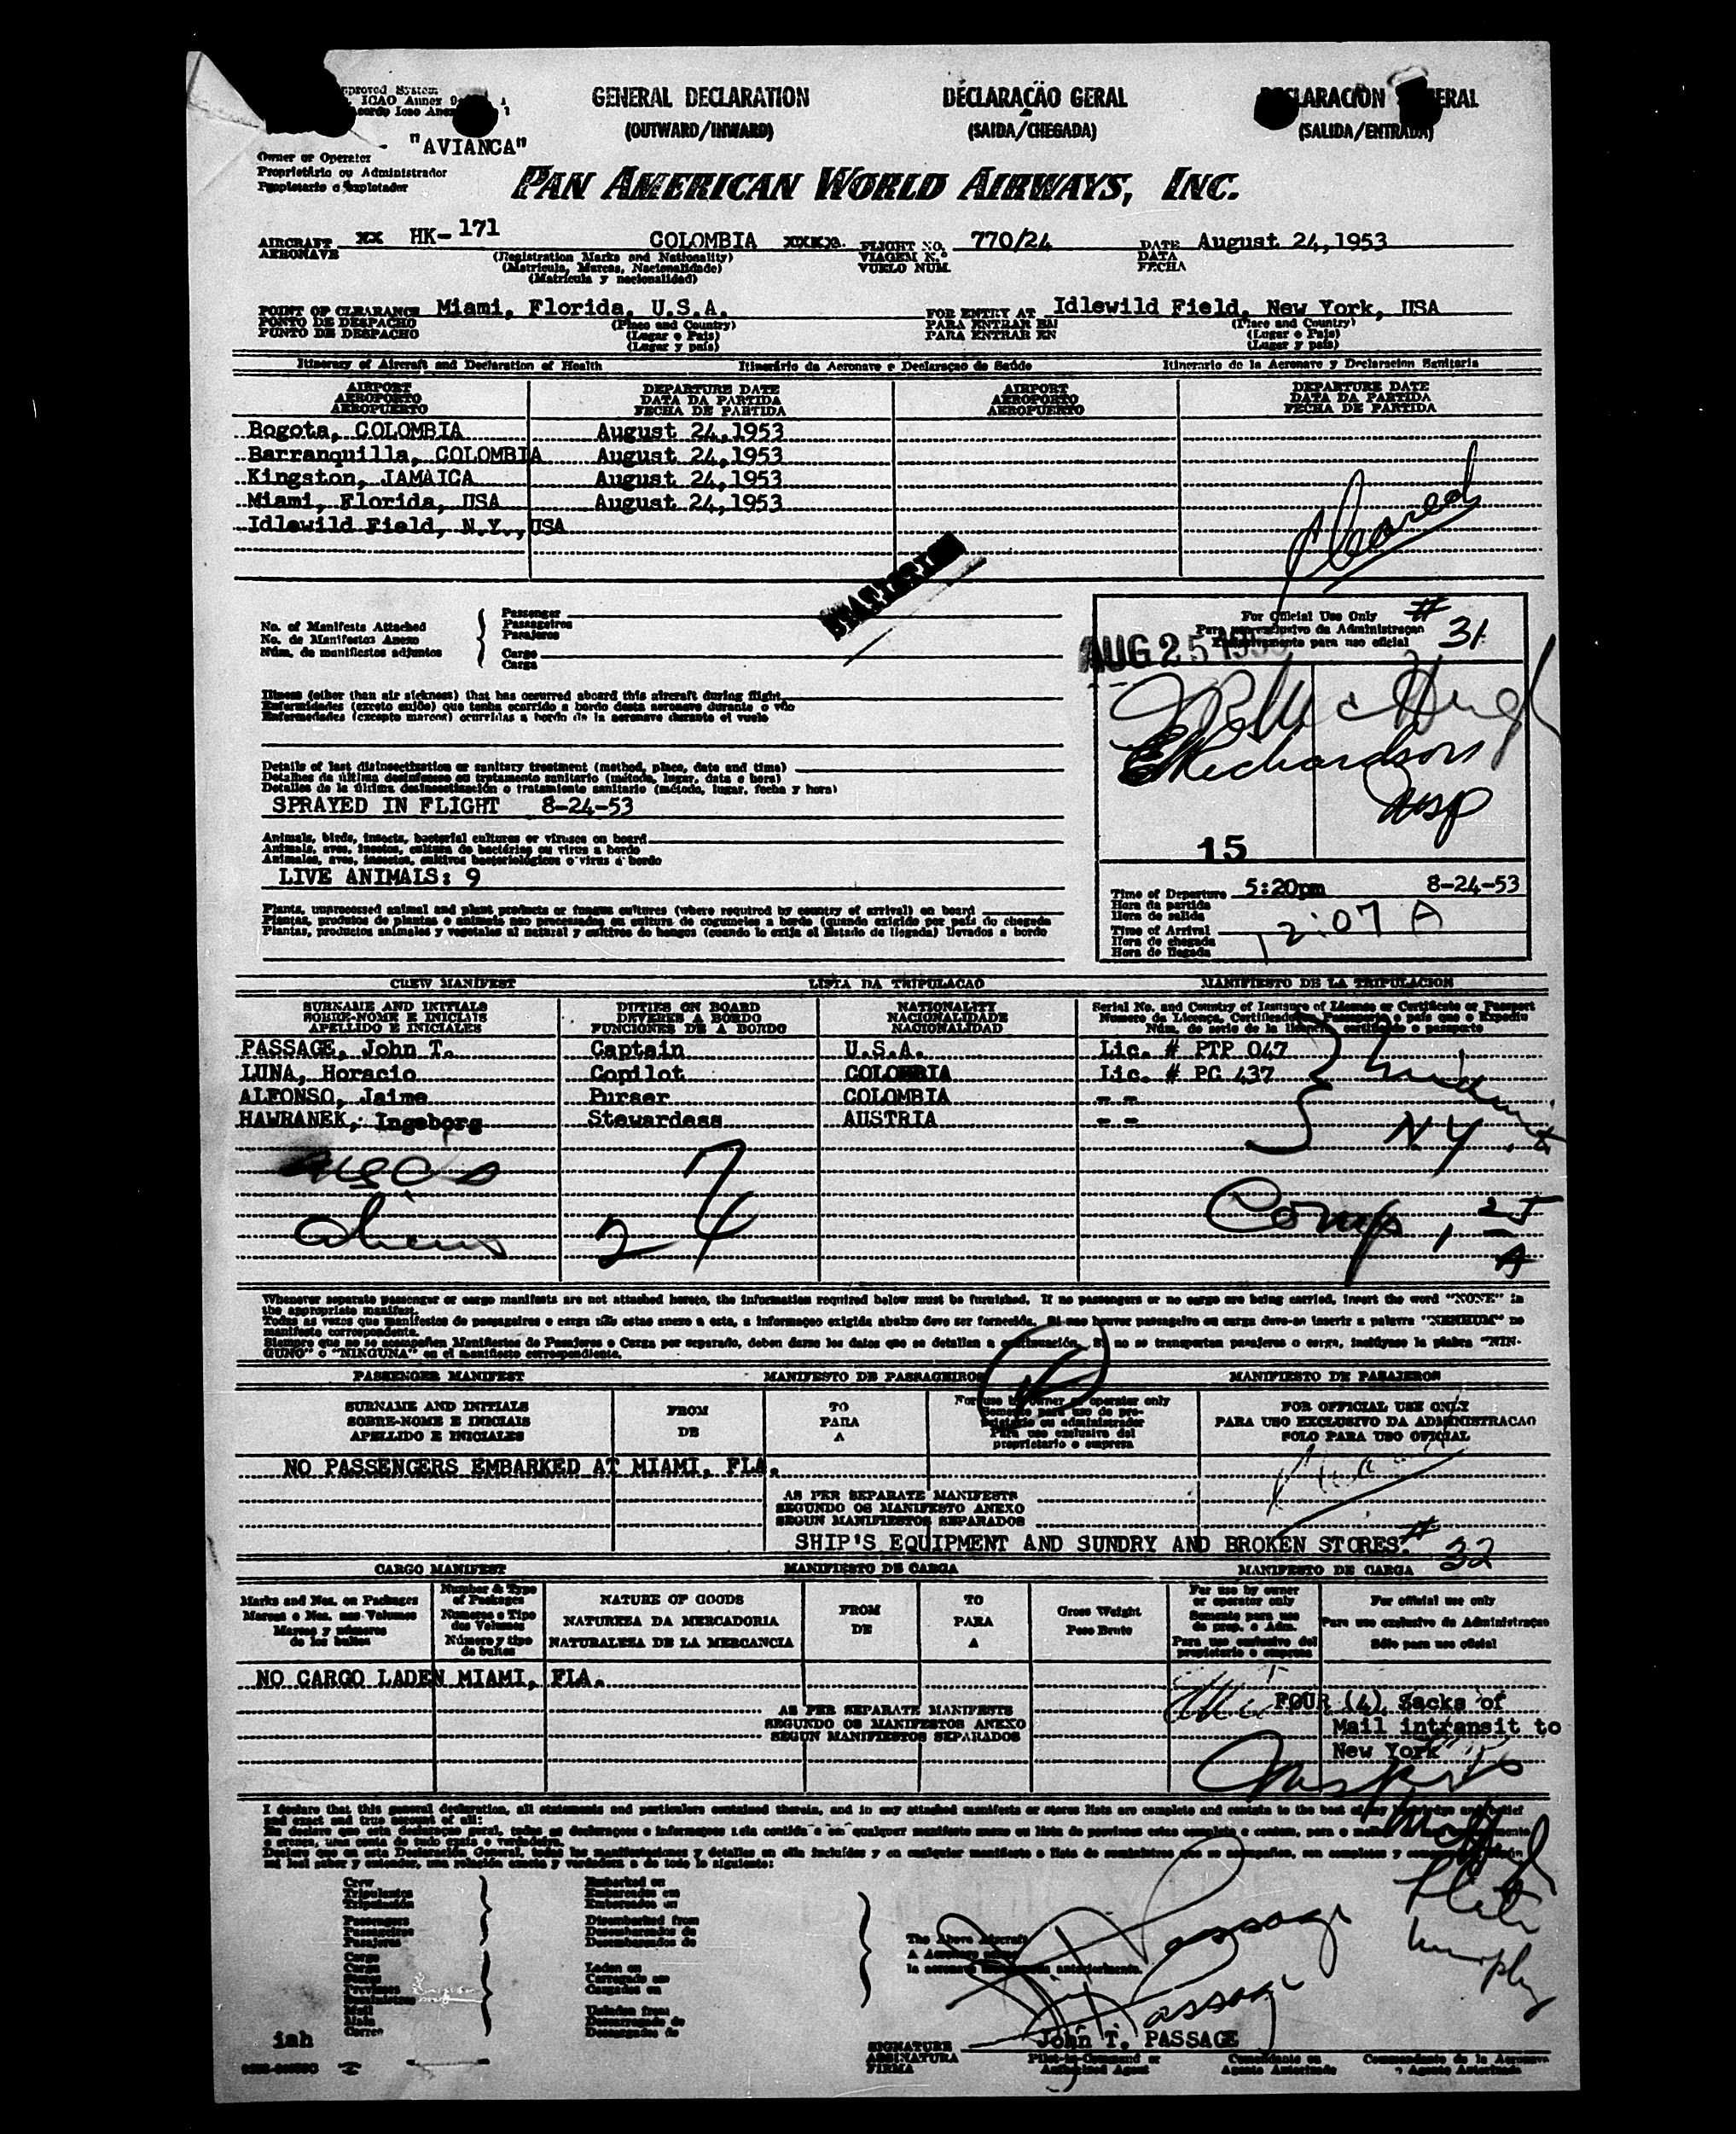 GENERAL DECLARATION
(OUTWARD/INWARD)
DECLARAÇÃO GERAL
(SAIDA/CHEGADA)
(SALIDA/ENTRADA)
"AVIANCA"
Owner or Operator
Proprietário ou Administrador
Propietario o explotador
PAN AMERICAN WORLD AIRWAYS, INC.
AIRCRAFT xx HK-171 COLOMBIA FLIGHT NO. 770/24 DATE August 24,1953
AERONAVE VIAGEM N.º DATA
VUELO NUM. FECHA
(Registration Marks and Nationality)
(Matricula, Marcas, Nacionalidade)
(Matricula y nacionalidad)
POINT OF CLEARANCE Miami, Florida, U.S.A. FOR ENTRY AT Idlewild Field, New York, USA
PONTO DE DESPACHO (Place and Country) PARA ENTRAR EM (Place and Country)
PUNTO DE DESPACHO (Lugar e Pais) PARA ENTRAR EN (Lugar e Pais)
(Lugar y país) (Lugar y país)
Itinerary of Aircraft and Declaration of Health Itinerário da Aeronave e Declaraçao de Saúde Itinerario de la Aeronave y Declaracion Sanitaria
AIRPORT DEPARTURE DATE AIRPORT DEPARTURE DATE
AEROPORTO DATA DA PARTIDA AEROPORTO DATA DA PARTIDA
AEROPUERTO FECHA DE PARTIDA AEROPUERTO FECHA DE PARTIDA
Bogota, COLOMBIA August 24,1953
Barranquilla, COLOMBIA August 24,1953
Kingston, JAMAICA August 24,1953
Miami, Florida, USA August 24,1953
Idlewild Field, N.Y.,USA
Cleared
STATISTICS
No. of Manifests Attached
No. de Manifestos Anexo
Núm. de manifiestos adjuntos
Passenger
Passageiros
Pasajeros
Cargo
Carga
For Official Use Only # 31
Para uso exclusivo da Administraçao
Exclusivamente para uso oficial
AUG 25 1953
Richardson
Insp
15
Illness (other than air sickness) that has occurred aboard this aircraft during flight
Enfermidades (exceto enjôo) que tenha ocorrido a bordo desta aeronave durante o vôo
Enfermedades (excepto mareos) ocurridas a bordo de la aeronave durante el vuelo
Details of last disinsectization or sanitary treatment (method, place, date and time)
Detalhes da última desinfensao ou tratamento sanitario (método, lugar, data e hora)
Detalles de la última desinsectización o tratamiento sanitario (método, lugar, fecha y hora)
SPRAYED IN FLIGHT 8-24-53
Animals, birds, insects, bacterial cultures or viruses on board
Animais, aves, insetos, cultura de bactérias ou virus a bordo
Animales, aves, insectos, cultivos bacteriológicos o virus a bordo
LIVE ANIMALS: 9
Plants, unprocessed animal and plant products or fungus cultures (where required by country of arrival) on board
Plantas, produtos de plantas e animais nao processados ou cultura de cogumelos a bordo (quando exigido por país do chegada
Plantas, productos animales y vegetales al natural y cultivos de hongos (cuando lo exija el Estado de llegada) llevados a bordo
Time of Departure 5:20pm 8-24-53
Hora da partida
Hora de salida
Time of Arrival 12:07 A
Hora de chegada
Hora de llegada
CREW MANIFEST LISTA DA TRIPULACAO MANIFIESTO DE LA TRIPULACION
SURNAME AND INITIALS DUTIES ON BOARD NATIONALITY Serial No. and Country of Issuance of License or Certificate or Passport
SOBRE-NOME E INICIAIS DEVERES A BORDO NACIONALIDADE
APELLIDO E INICIALES FUNCIONES DE A BORDO NACIONALIDAD Núm. de serie de la licencia certificado o pasaporte
PASSAGE, John T. Captain U.S.A. Lic. # PTP 047
LUNA, Horacio Copilot COLOMBIA Lic. # PC 437
ALFONSO, Jaime Purser COLOMBIA - -
HAWRANEK, Ingeborg Stewardess AUSTRIA - -
NY
USCs 7
aliens 24
Whenever separate passenger or cargo manifests are not attached hereto, the information required below must be furnished. If no passengers or no cargo are being carried, insert the word "NONE" in
the appropriate manifest.
Todas as vezes que manifestos de passageiros e carga não estao anexo a esta, a informaçao exigida abaixo deve ser fornecida. Si nao houver passageiro ou carga deve-se inserir a palavra "NENHUM" no
manifesto correspondente.
Siempre que no se acompañen Manifiestos de Pasajeros o Carga por separado, deben darse los datos que se detallan a continuación. Si no se transportan pasajeros o carga, insértese la plabra "NIN-
GUNO" o "NINGUNA" en el manifiesto correspondiente.
PASSENGER MANIFEST MANIFESTO DE PASSAGEIROS MANIFIESTO DE PASAJEROS
SURNAME AND INITIALS FROM TO For use by owner or operator only FOR OFFICIAL USE ONLY
SOBRE-NOME E INICIAIS DE PARA PARA USO EXCLUSIVO DA ADMINISTRACAO
APELLIDO E INICIALES A SOLO PARA USO OFICIAL
Para uso exclusivo del
proprietario o empresa
NO PASSENGERS EMBARKED AT MIAMI, FLA.
AS PER SEPARATE MANIFESTS
SEGUNDO OS MANIFESTO ANEXO
SEGUN MANIFIESTOS SEPARADOS
SHIP'S EQUIPMENT AND SUNDRY AND BROKEN STORES. # 32
CARGO MANIFEST MANIFIESTO DE CARGA MANIFIESTO DE CARGA
Marks and Nos. on Packages Number & Type of Packages NATURE OF GOODS FROM TO Gross Weight For use by owner or operator only For official use only
Marcas e Nos. nos Volumes Numeros e Tipo dos Volumes NATUREZA DA MERCADORIA DE PARA Peso Bruto Somente para uso de prop. e Adm. Para uso exclusivo da Administraçao
Marcas y números de los bultos Número y tipo de bultos NATURALEZA DE LA MERCANCIA A Para uso exclusivo del propietario o empresa Sólo para uso oficial
NO CARGO LADEN MIAMI, FLA.
AS PER SEPARATE MANIFESTS
SEGUNDO OS MANIFESTOS ANEXO
SEGUN MANIFIESTOS SEPARADOS
FOUR (4) Sacks of
Mail intransit to
New York
I declare that this general declaration, all statements and particulars contained therein, and in any attached manifests or stores lists are complete and contain to the best of my knowledge and belief
and exact and true account of all:
Crew
Tripulantes
Tripulación
Passengers
Passageiros
Pasajeros
Cargo
Carga
Stores
Mail
Mala
Correo
Embarked on
Embarcados em
Embarcados en
Disembarked from
Desembarcados de
Desembarcados de
Laden on
Carregado em
Cargados en
Unladen from
Descarregado de
Descargados de
The Above Aircraft
Murphy
iah
John T. PASSAGE
SIGNATURE
ASSINATURA
FIRMA
Pilot-in-Command or
Authorized Agent
Comandante ou
Agente Autorizado
Commandante de la Aeronave
o Agente Autorizado